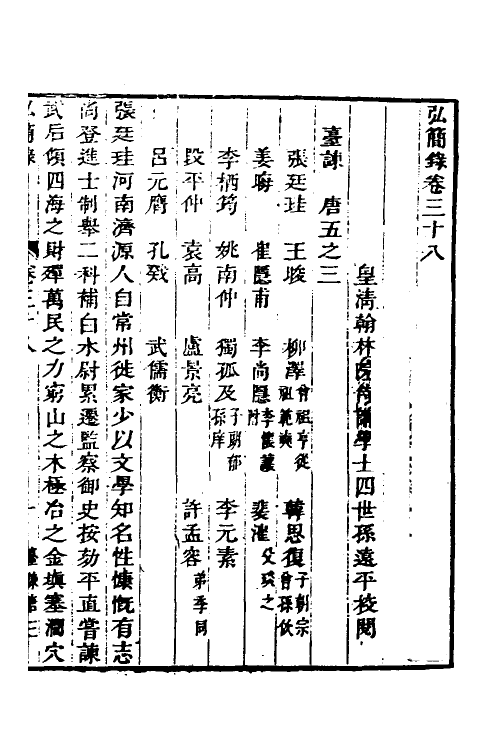 弘簡錄卷三十八
皇清翰林院侍讀學士四世孫遠平校閱
臺諫　唐五之三
張廷珪　王晙　柳澤曾祖亨從祖範奭　韓思復子朝宗曾孫佽
姜晦　崔隱甫　李尚隱李傑附　裴漼父琰之
李栖筠　姚南仲　獨孤及子朗郁孫庠　李元素
段平仲　袁高　盧景亮　許孟容弟季同
呂元膺　孔戣　武儒衡
張廷珪河南濟源人自常州徙家少以文學知名性慷慨有志
尚登進士制舉二科補白水尉累遷監察御史按劾平直嘗諫
武后傾四海之財殫萬民之力窮山之木極冶之金塡塞澗穴
弘簡錄　卷三十八　一　臺諫唐五